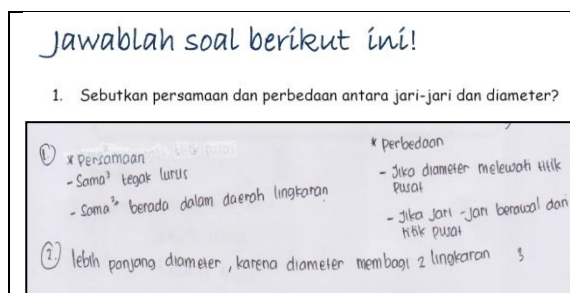 Jawablah soal berikut ini!
1. Sebutkan persamaan dan perbedaan antara jari-jari dan diameter?
1. * Persamaan
- Sama² tegak lurus
- Sama² berada dalam daerah lingkaran
* perbedaan
- Jika diameter melewati titik
pusat
- Jika jari-jari berawal dari
titik pusat
2. lebih panjang diameter, karena diameter membagi 2 lingkaran